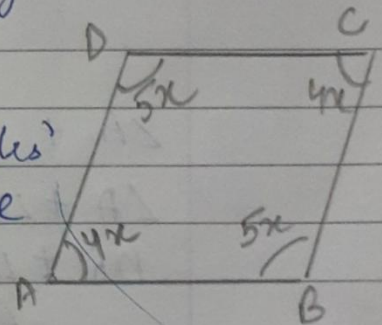 D C
5x 4x
e
4x 5x
A B